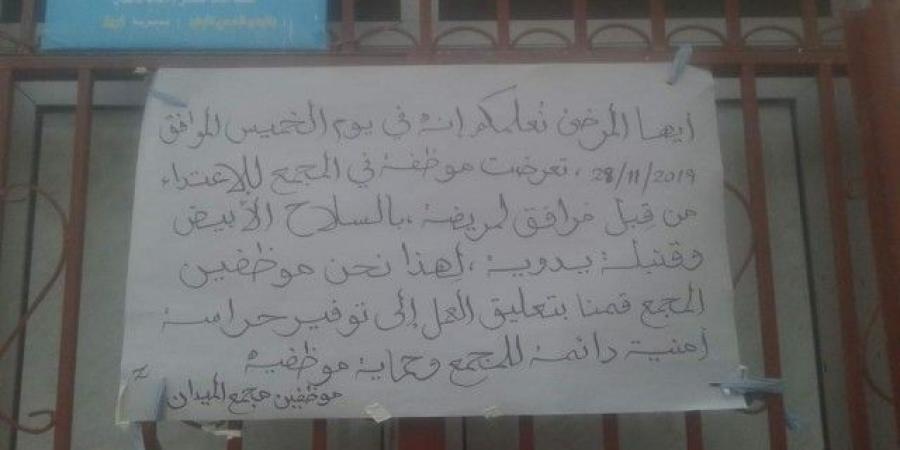 أيها المرضى نُعلمكم إنه في يوم الخميس الموافق
28/11/2019، تعرضت موظفة في المجمع للإعتداء
من قِبل مرافق لمريضة، بالسلاح الأبيض
وقنبلة يدوية، لهذا نحن موظفين
المجمع قمنا بتعليق العمل إلى توفير حراسة
أمنية دائمة للمجمع وحماية موظفيه
موظفين مجمع الميدان